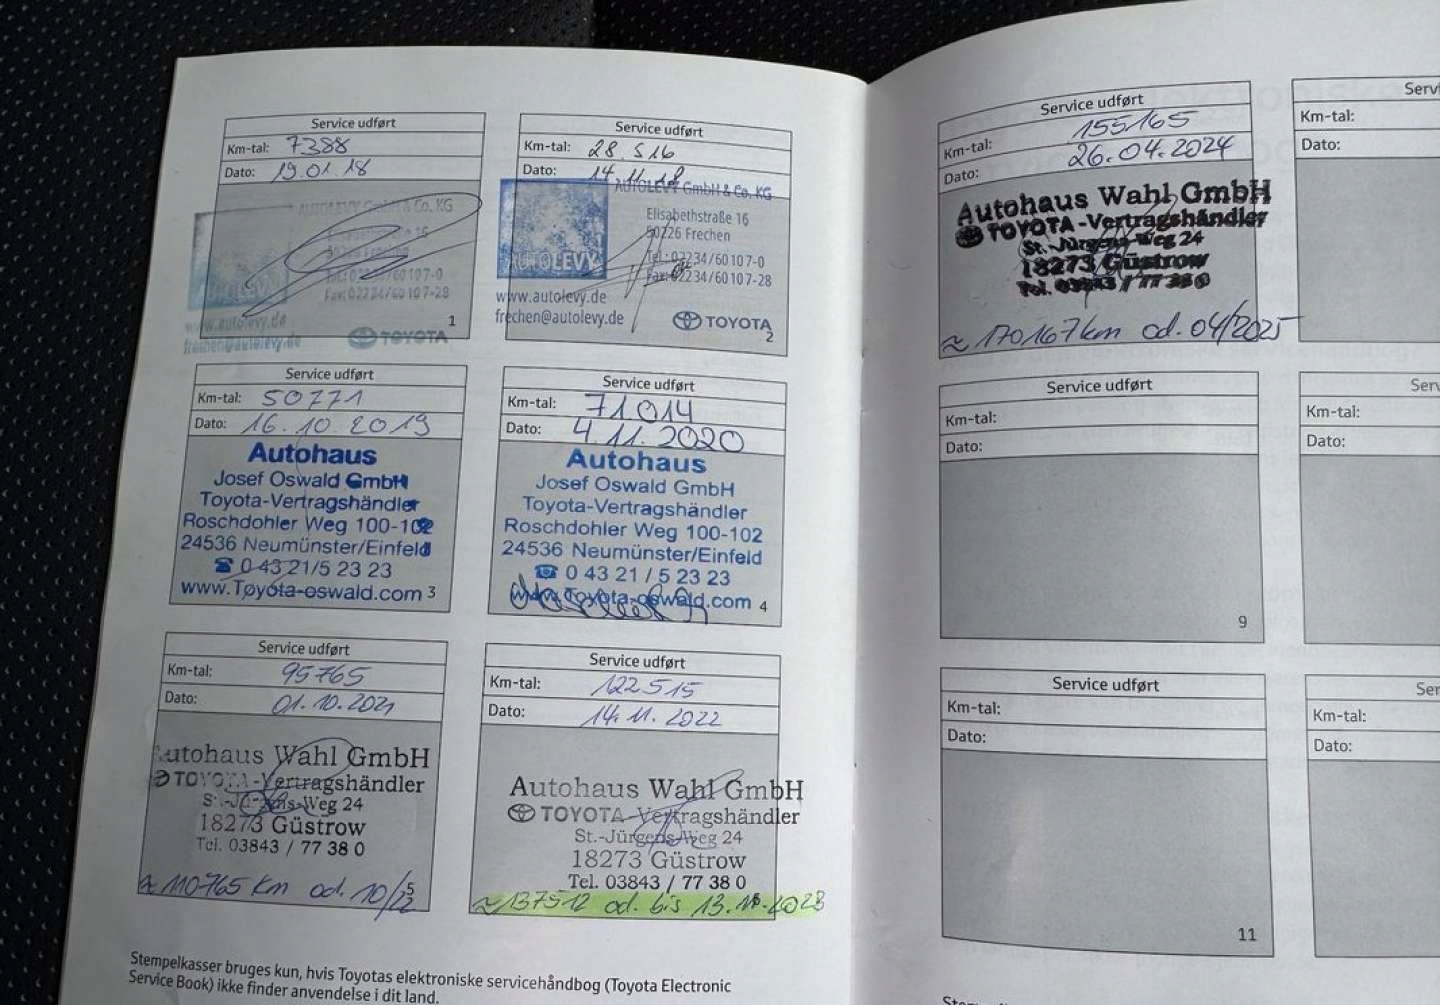 Service udført
Km-tal: 7388
Dato: 19.01.18
AUTOLEVY GmbH & Co. KG
Tel.: 02234/60107-0
Fax: 02234/60107-28
www.autolevy.de
frechen@autolevy.de
TOYOTA
1
Service udført
Km-tal: 28.516
Dato: 14.11.18
AUTOLEVY GmbH & Co. KG
Elisabethstraße 16
50226 Frechen
AUTOLEVY
Tel.: 02234/60107-0
Fax: 02234/60107-28
www.autolevy.de
frechen@autolevy.de
TOYOTA
2
Service udført
Km-tal: 50771
Dato: 16.10.2019
Autohaus
Josef Oswald GmbH
Toyota-Vertragshändler
Roschdohler Weg 100-102
24536 Neumünster/Einfeld
☎ 0 43 21/5 23 23
www.Toyota-oswald.com
3
Service udført
Km-tal: 71014
Dato: 4.11.2020
Autohaus
Josef Oswald GmbH
Toyota-Vertragshändler
Roschdohler Weg 100-102
24536 Neumünster/Einfeld
☎ 0 43 21 / 5 23 23
www.Toyota-oswald.com
4
Service udført
Km-tal: 95765
Dato: 01.10.2021
Autohaus Wahl GmbH
TOYOTA-Vertragshändler
St.-Jürgens-Weg 24
18273 Güstrow
Tel. 03843 / 77 38 0
≈ 110765 km od. 10/22
Service udført
Km-tal: 122515
Dato: 14.11.2022
Autohaus Wahl GmbH
TOYOTA-Vertragshändler
St.-Jürgens-Weg 24
18273 Güstrow
Tel. 03843 / 77 38 0
≈ 137512 od. bis 13.11.2023
Stempelkasser bruges kun, hvis Toyotas elektroniske servicehåndbog (Toyota Electronic
Service Book) ikke finder anvendelse i dit land.
Service udført
Km-tal: 155165
Dato: 26.04.2024
Autohaus Wahl GmbH
TOYOTA-Vertragshändler
St.-Jürgens-Weg 24
18273 Güstrow
Tel. 03843 / 77 38 0
≈ 170167 km od. 04/2025
Servi
Km-tal:
Dato:
Service udført
Km-tal:
Dato:
9
Serv
Km-tal:
Dato:
Service udført
Km-tal:
Dato:
11
Ser
Km-tal:
Dato: